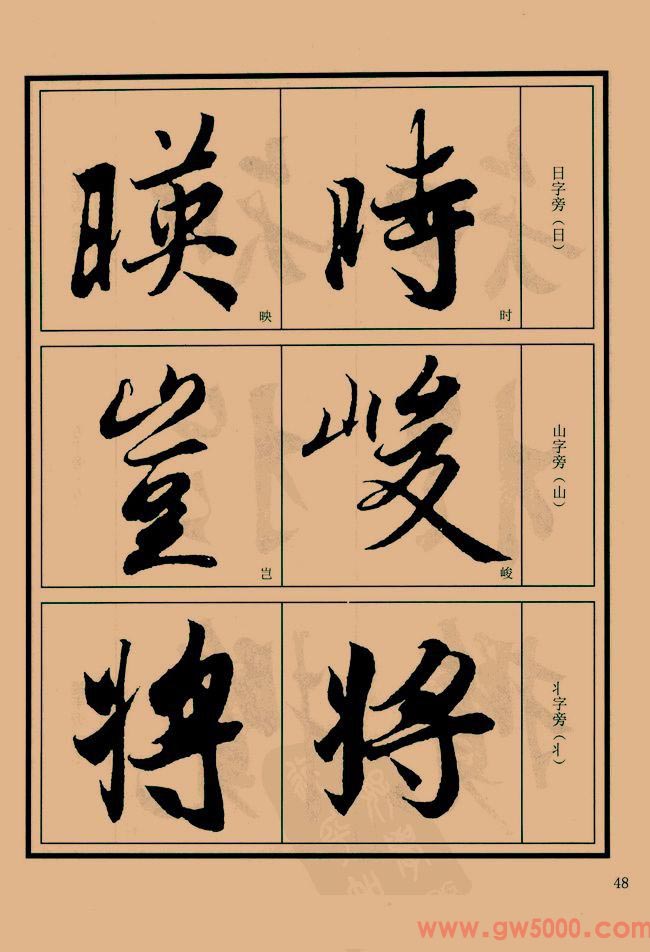 日字旁（日）
時
时
暎
映
山字旁（山）
峻
峻
豈
岂
丬字旁（丬）
將
將
48
www.gw5000.com